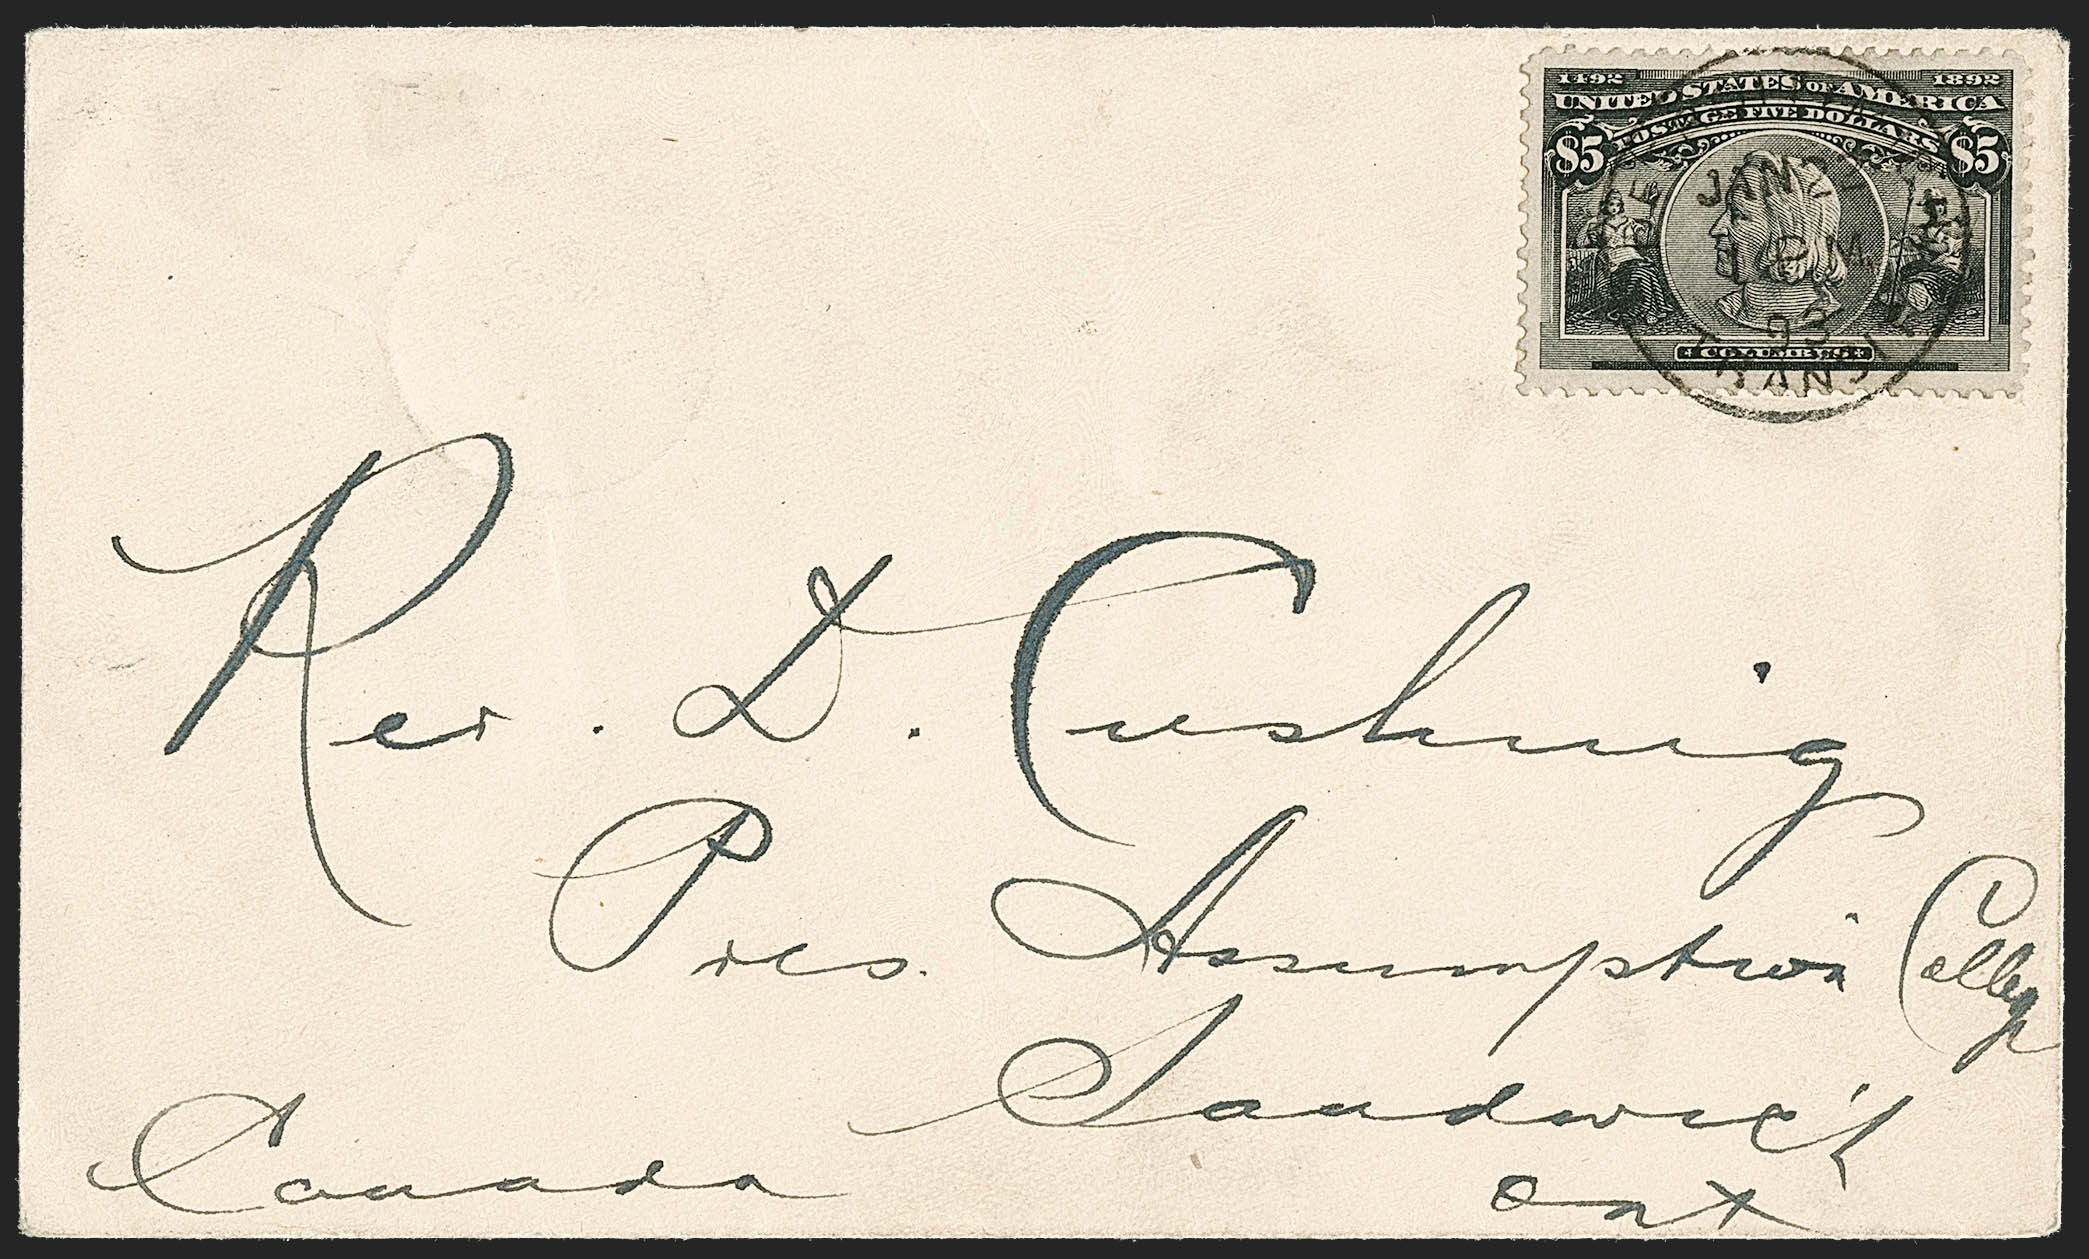 1492 1892
UNITED STATES OF AMERICA
POSTAGE FIVE DOLLARS
$5 $5
COLUMBUS
JAN
PM
93
TRANSIT
Rev. D. Cushing
Pres. Assumption College
Sandwich
Canada Ont